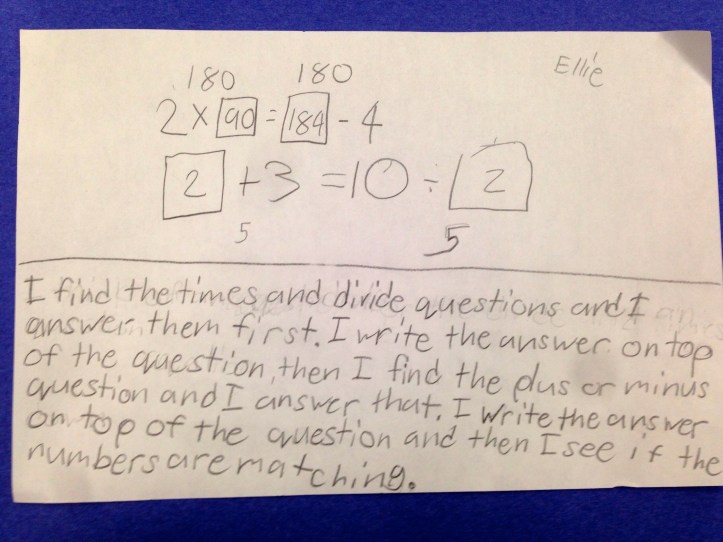 Ellie
180 180
2 × 90 = 184 - 4
2 + 3 = 10 ÷ 2
5 5
I find the times and divide questions and I
answer them first. I write the answer on top
of the question, then I find the plus or minus
question and I answer that. I write the answer
on top of the question and then I see if the
numbers are matching.